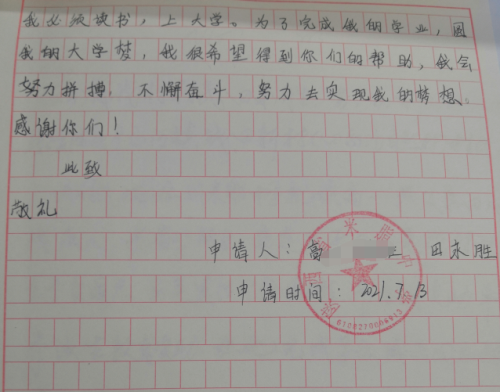 我必须读书，上大学。为了完成我的学业，圆
我的大学梦，我很希望得到你们的帮助，我会
努力拼搏，不懈奋斗，努力去实现我的梦想。
感谢你们！
此致
敬礼
申请人：高 三 田永胜
申请时间：2021.7.13